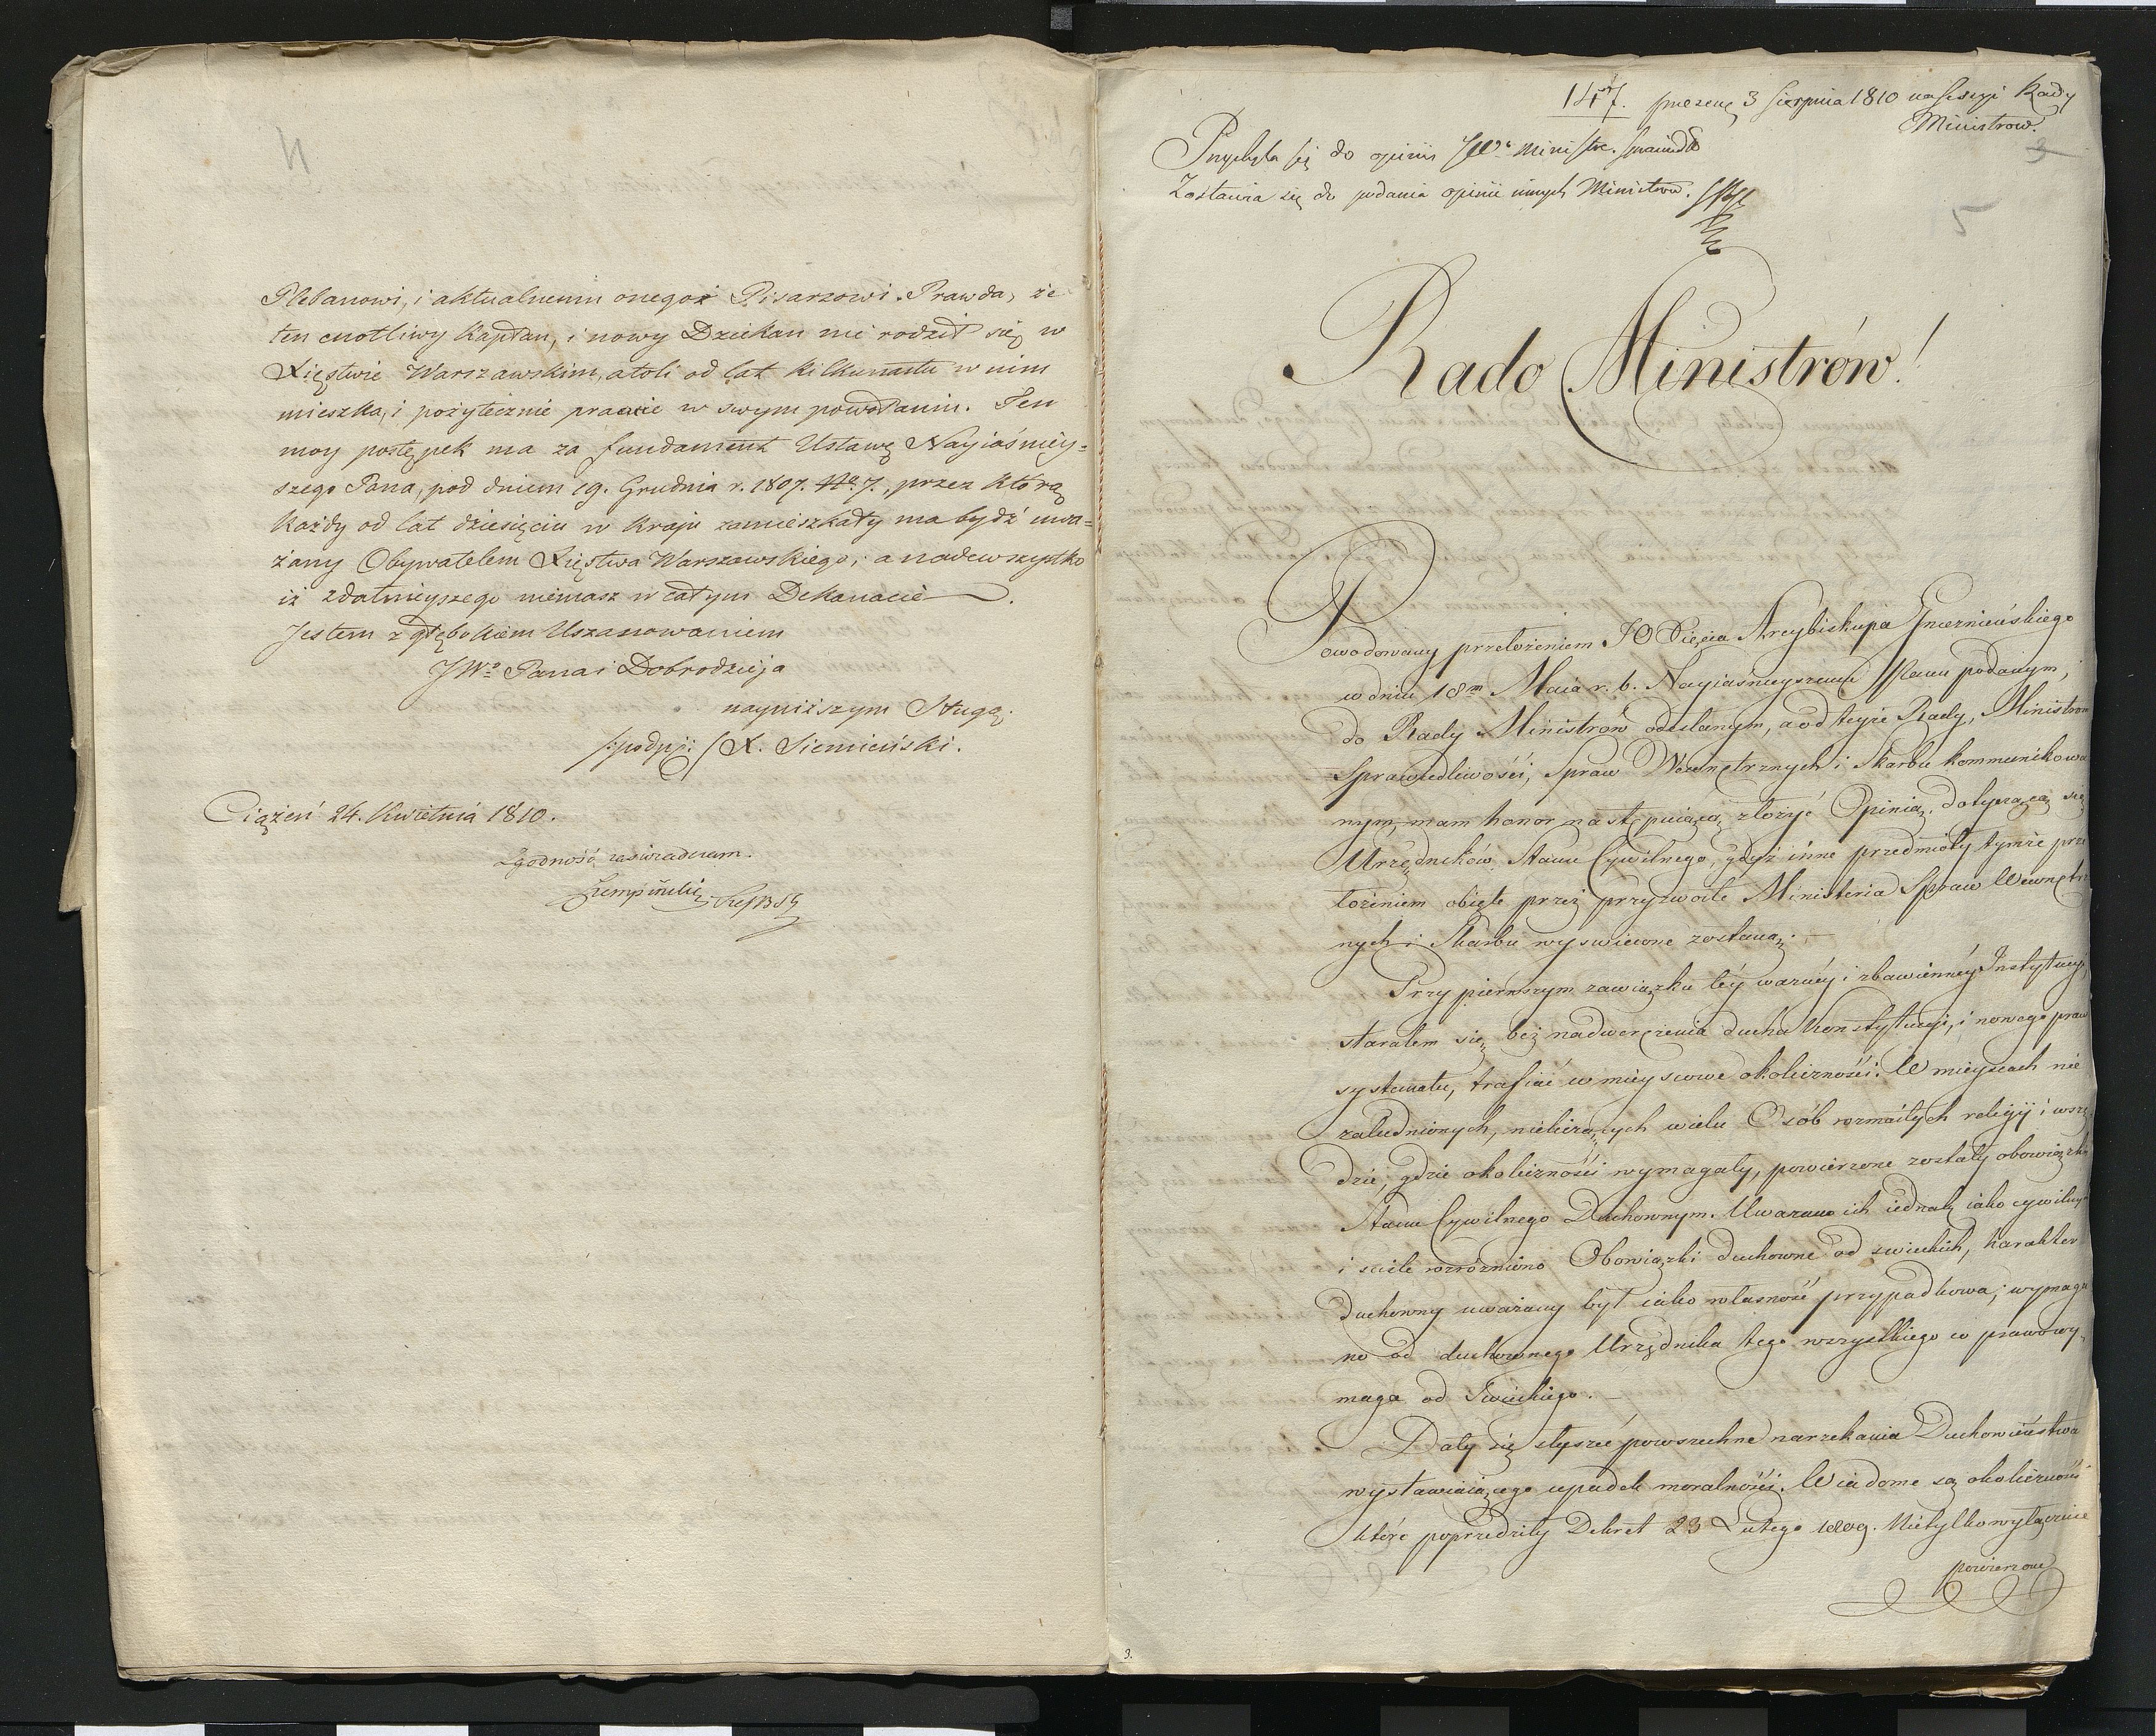 Plebanowi, i aktualnemu onegoż Pisarzowi. Prawda, że
ten cnotliwy Kapłan, i nowy Dziekan nie rodził się w
Xięstwie Warszawskim, atoli od lat kilkunastu w nim
mieszka, i pożytecznie pracuie w swym powołaniu. Ten
moy postępek ma za fundament Ustawę Nayiaśniey=
szego Pana, pod dniem 19. Grudnia r. 1807. No. 7., przez którą
każdy od lat dziesięciu w kraju zamieszkały ma bydź uwa=
żany Obywatelem Xięstwa Warszawskiego; a nadewszystko
iż zdatnieyszego niemasz w całym Dekanacie.
Jestem z głębokiem Uszanowaniem
JWo Pana i Dobrodzieja
nayniższym Sługą.
/:podpji:/ X. Siemieński.
Ciążeń 24. Kwietnia 1810.
Zgodność zaświadczam.
4
147. 3 Sierpnia 1810 na Sessyi Rady
Ministrow.
Przychyla się do opinii JWo Ministr.
Zostawia się do podania opinii innych Ministrow.
3
5
Rado Ministrów!
Powodowany przełożeniem JO Xięcia Arcybiskupa Gnieznieńskiego
w dniu 18m Maia r. b. Nayiaśnieyszemu Panu podanym,
do Rady Ministrów odesłanym, a od teyże Rady, Ministrom
Sprawiedliwości, Spraw Wewnętrznych i Skarbu kommunikowa
nym, mam honor następuiącą złożyć Opinią, dotyczącą się
Urzędników Stanu Cywilnego, gdyż inne przedmioty tymże prze
łożeniem obięte przez przyzwoite Ministeria Spraw Wewnętrz
nych i Skarbu wyswiecone zostaną.
Przy pierwszym zawiązku téy ważnéy i zbawiennéy Instytucyi,
starałem się bez nadwerężenia ducha Konstytucyi, i nowego praw
systematu, trafiać w mieyscowe okoliczności. W mieyscach nie
zaludnionych, nieliczących wielu Osób rozmaitych religii i wszę
dzie, gdzie okoliczności wymagały, powierzone zostały obowiązki
Stanu Cywilnego Duchownym. Uważano ich iednak iako cywilnych
i ściśle rozróżniono Obowiązki duchowne od swieckich, karakter
duchowny uważany był iako własność przypadkowa; wymaga
no od duchownego Urzędnika tego wszystkiego co prawo wy-
maga od Swieckiego.
Dały się słyszeć powszechne narzekania Duchowieństwa
wystawiaiącego upadek moralności. Wiadome są okoliczności
które poprzedziły Dekret 23 Lutego 1809. Nietylko wyłącznie
powierzone
3.